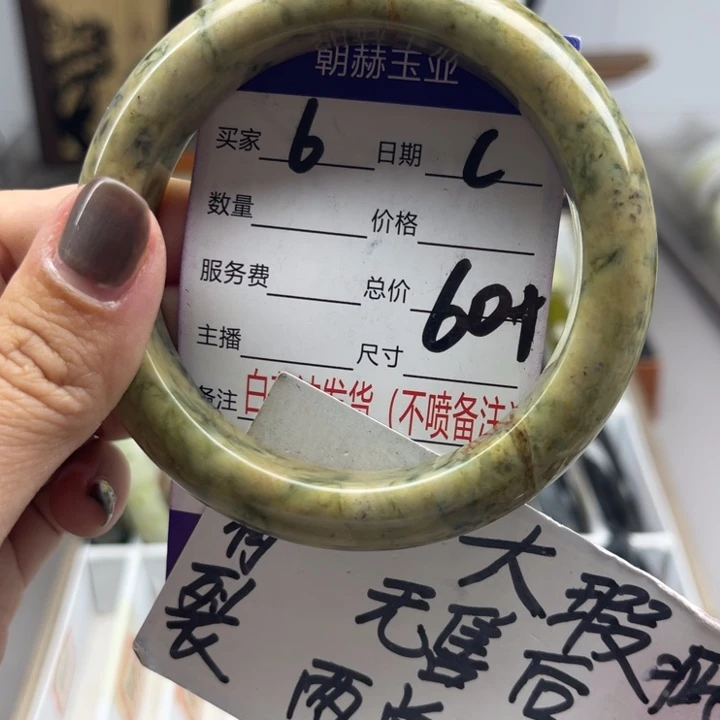 朝赫玉业
买家 6 日期 C
数量 价格
服务费 总价 60+
主播 尺寸
备注 白 发货(不喷备注
大瑕
裂 无售后
两